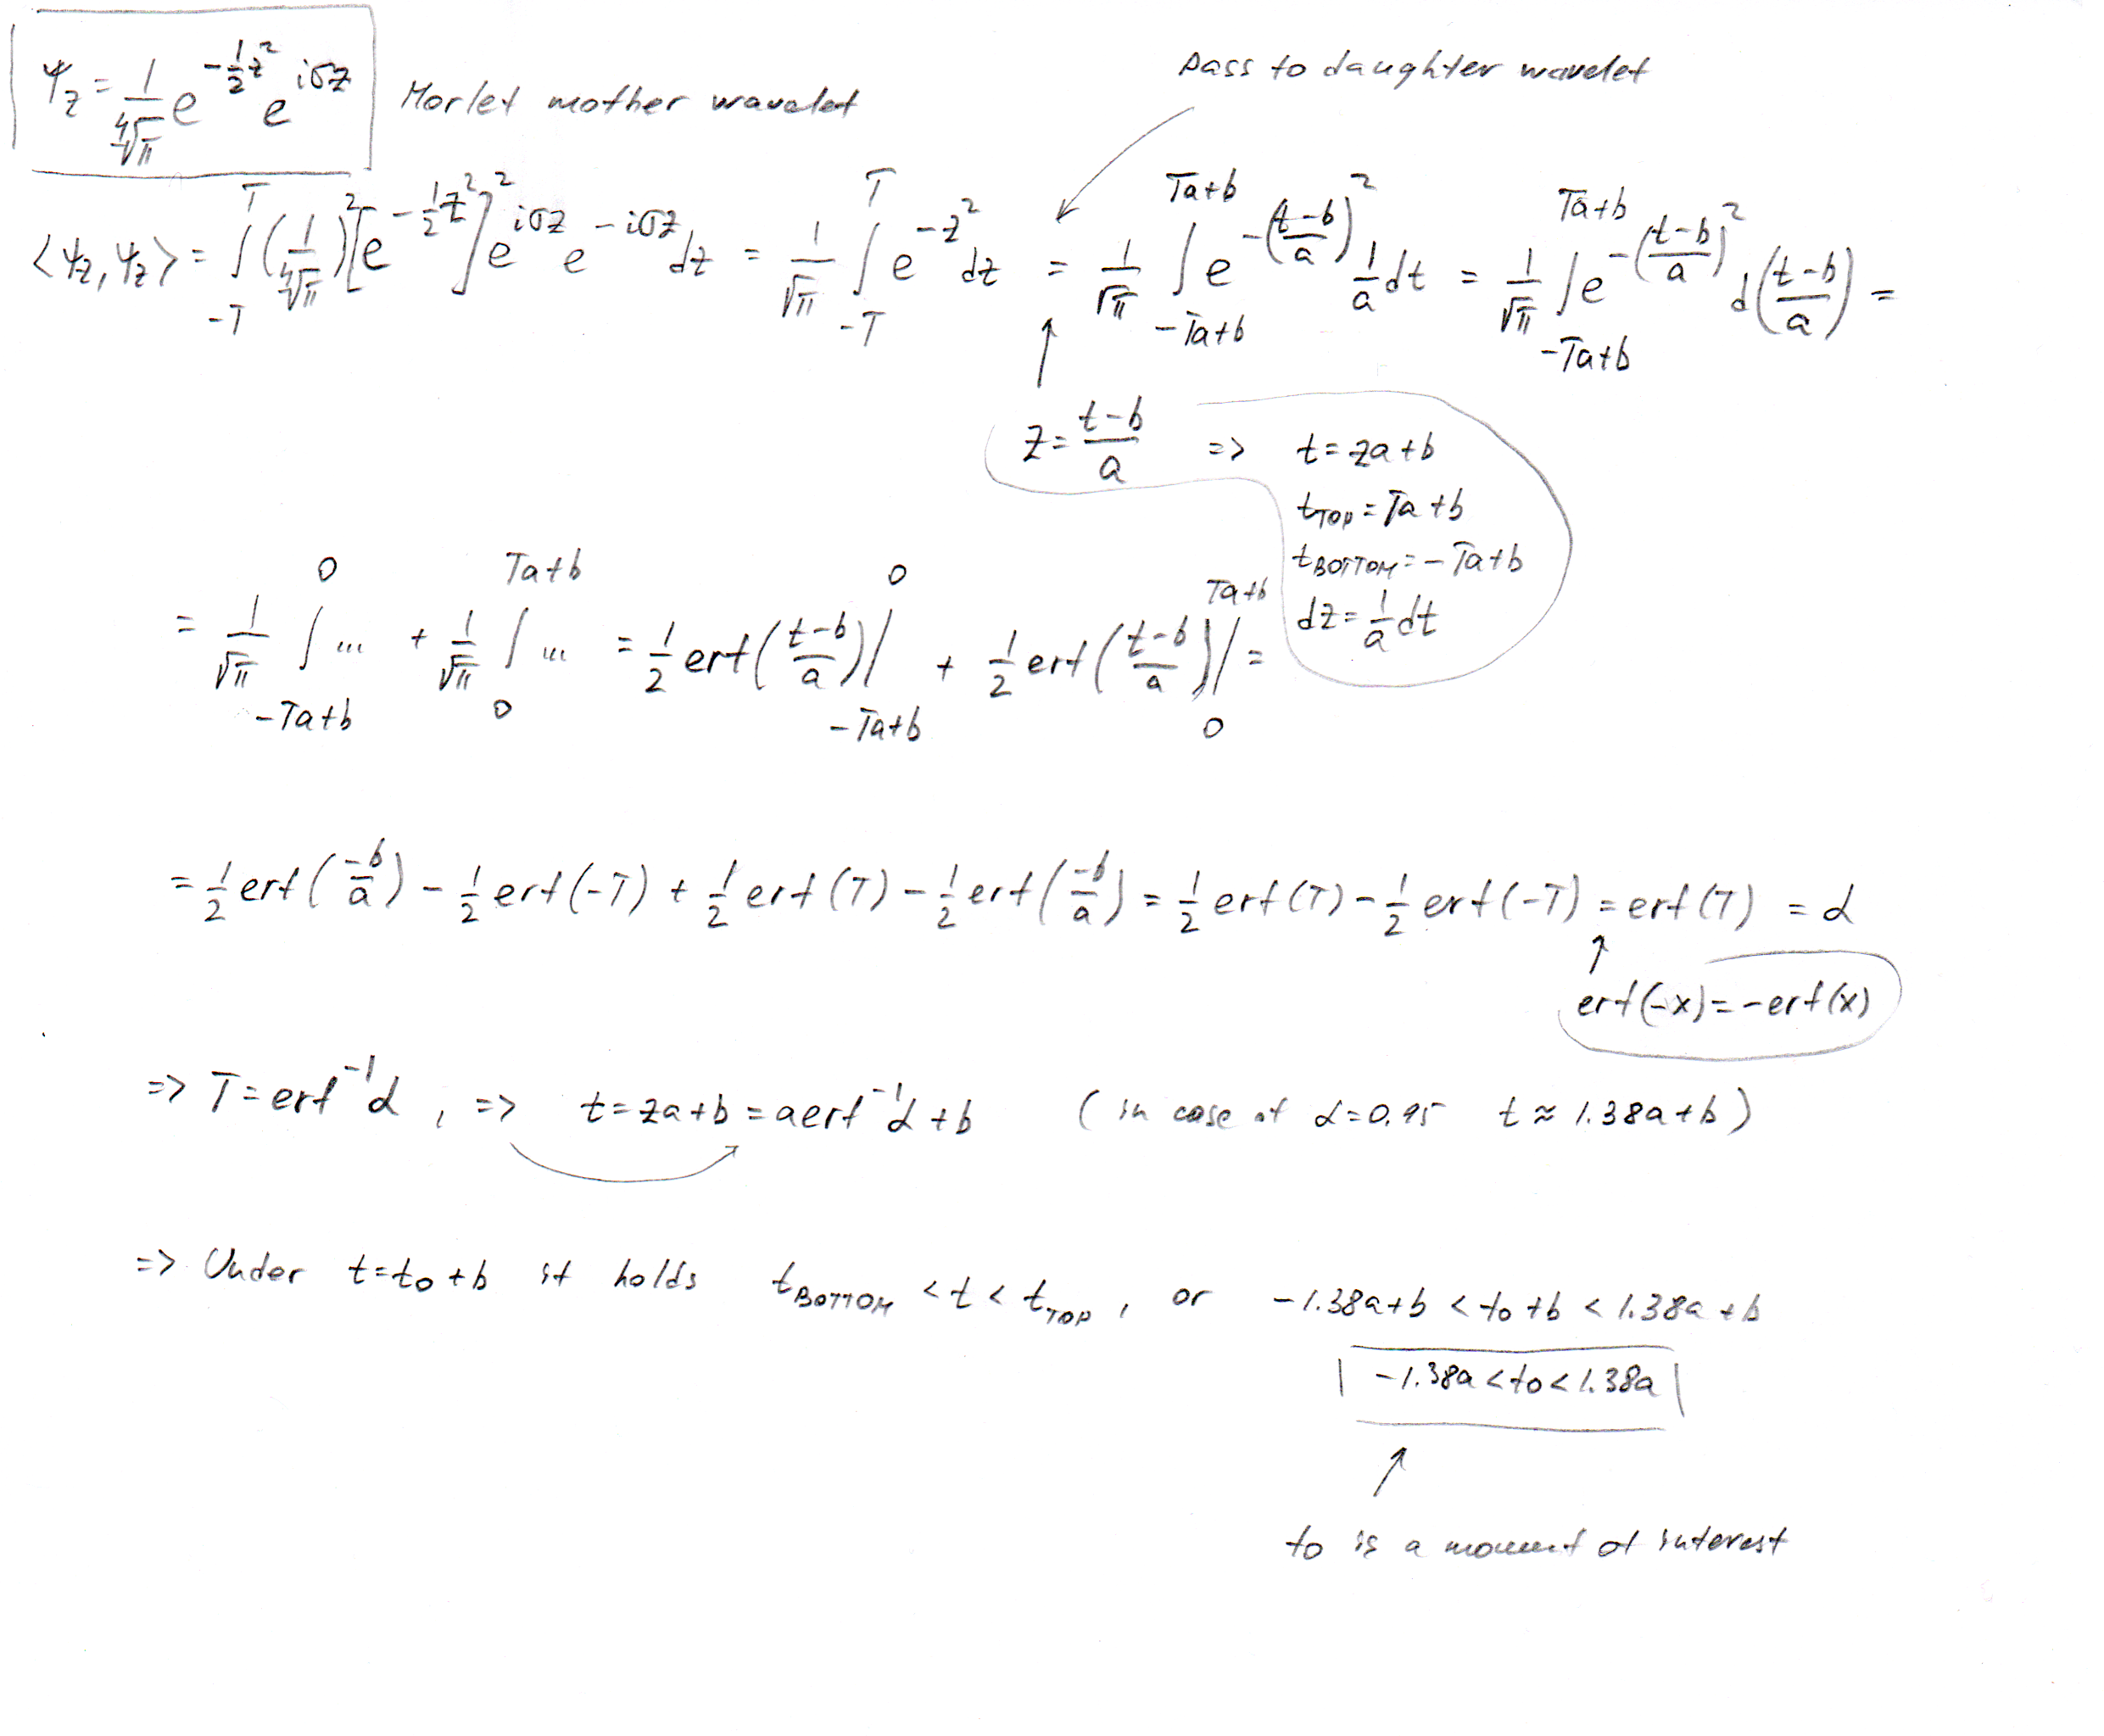 pass to daughter wavelet
Ψ_z = 1/∜π e^(-½z²) e^(iσz) Morlet mother wavelet
<Ψ_z, Ψ_z> = ∫_{-T}^{T} (1/∜π)² [e^(-½z²)]² e^(iσz) e^(-iσz) dz = 1/√π ∫_{-T}^{T} e^(-z²) dz = 1/√π ∫_{-Ta+b}^{Ta+b} e^(-((t-b)/a)²) 1/a dt = 1/√π ∫_{-Ta+b}^{Ta+b} e^(-((t-b)/a)²) d((t-b)/a) =
z = (t-b)/a => t = za+b
t_TOP = Ta+b
t_BOTTOM = -Ta+b
dz = 1/a dt
= 1/√π ∫_{-Ta+b}^{0} ... + 1/√π ∫_{0}^{Ta+b} ... = ½ erf((t-b)/a)|_{-Ta+b}^{0} + ½ erf((t-b)/a)|_{0}^{Ta+b} =
= ½ erf(-b/a) - ½ erf(-T) + ½ erf(T) - ½ erf(-b/a) = ½ erf(T) - ½ erf(-T) = erf(T) = α
erf(-x) = -erf(x)
=> T = erf⁻¹α, => t = za+b = a erf⁻¹α + b (in case of α=0.95 t ≈ 1.38a+b)
=> Under t=to+b it holds t_BOTTOM < t < t_TOP, or -1.38a+b < to+b < 1.38a+b
-1.38a < to < 1.38a
to is a moment of interest